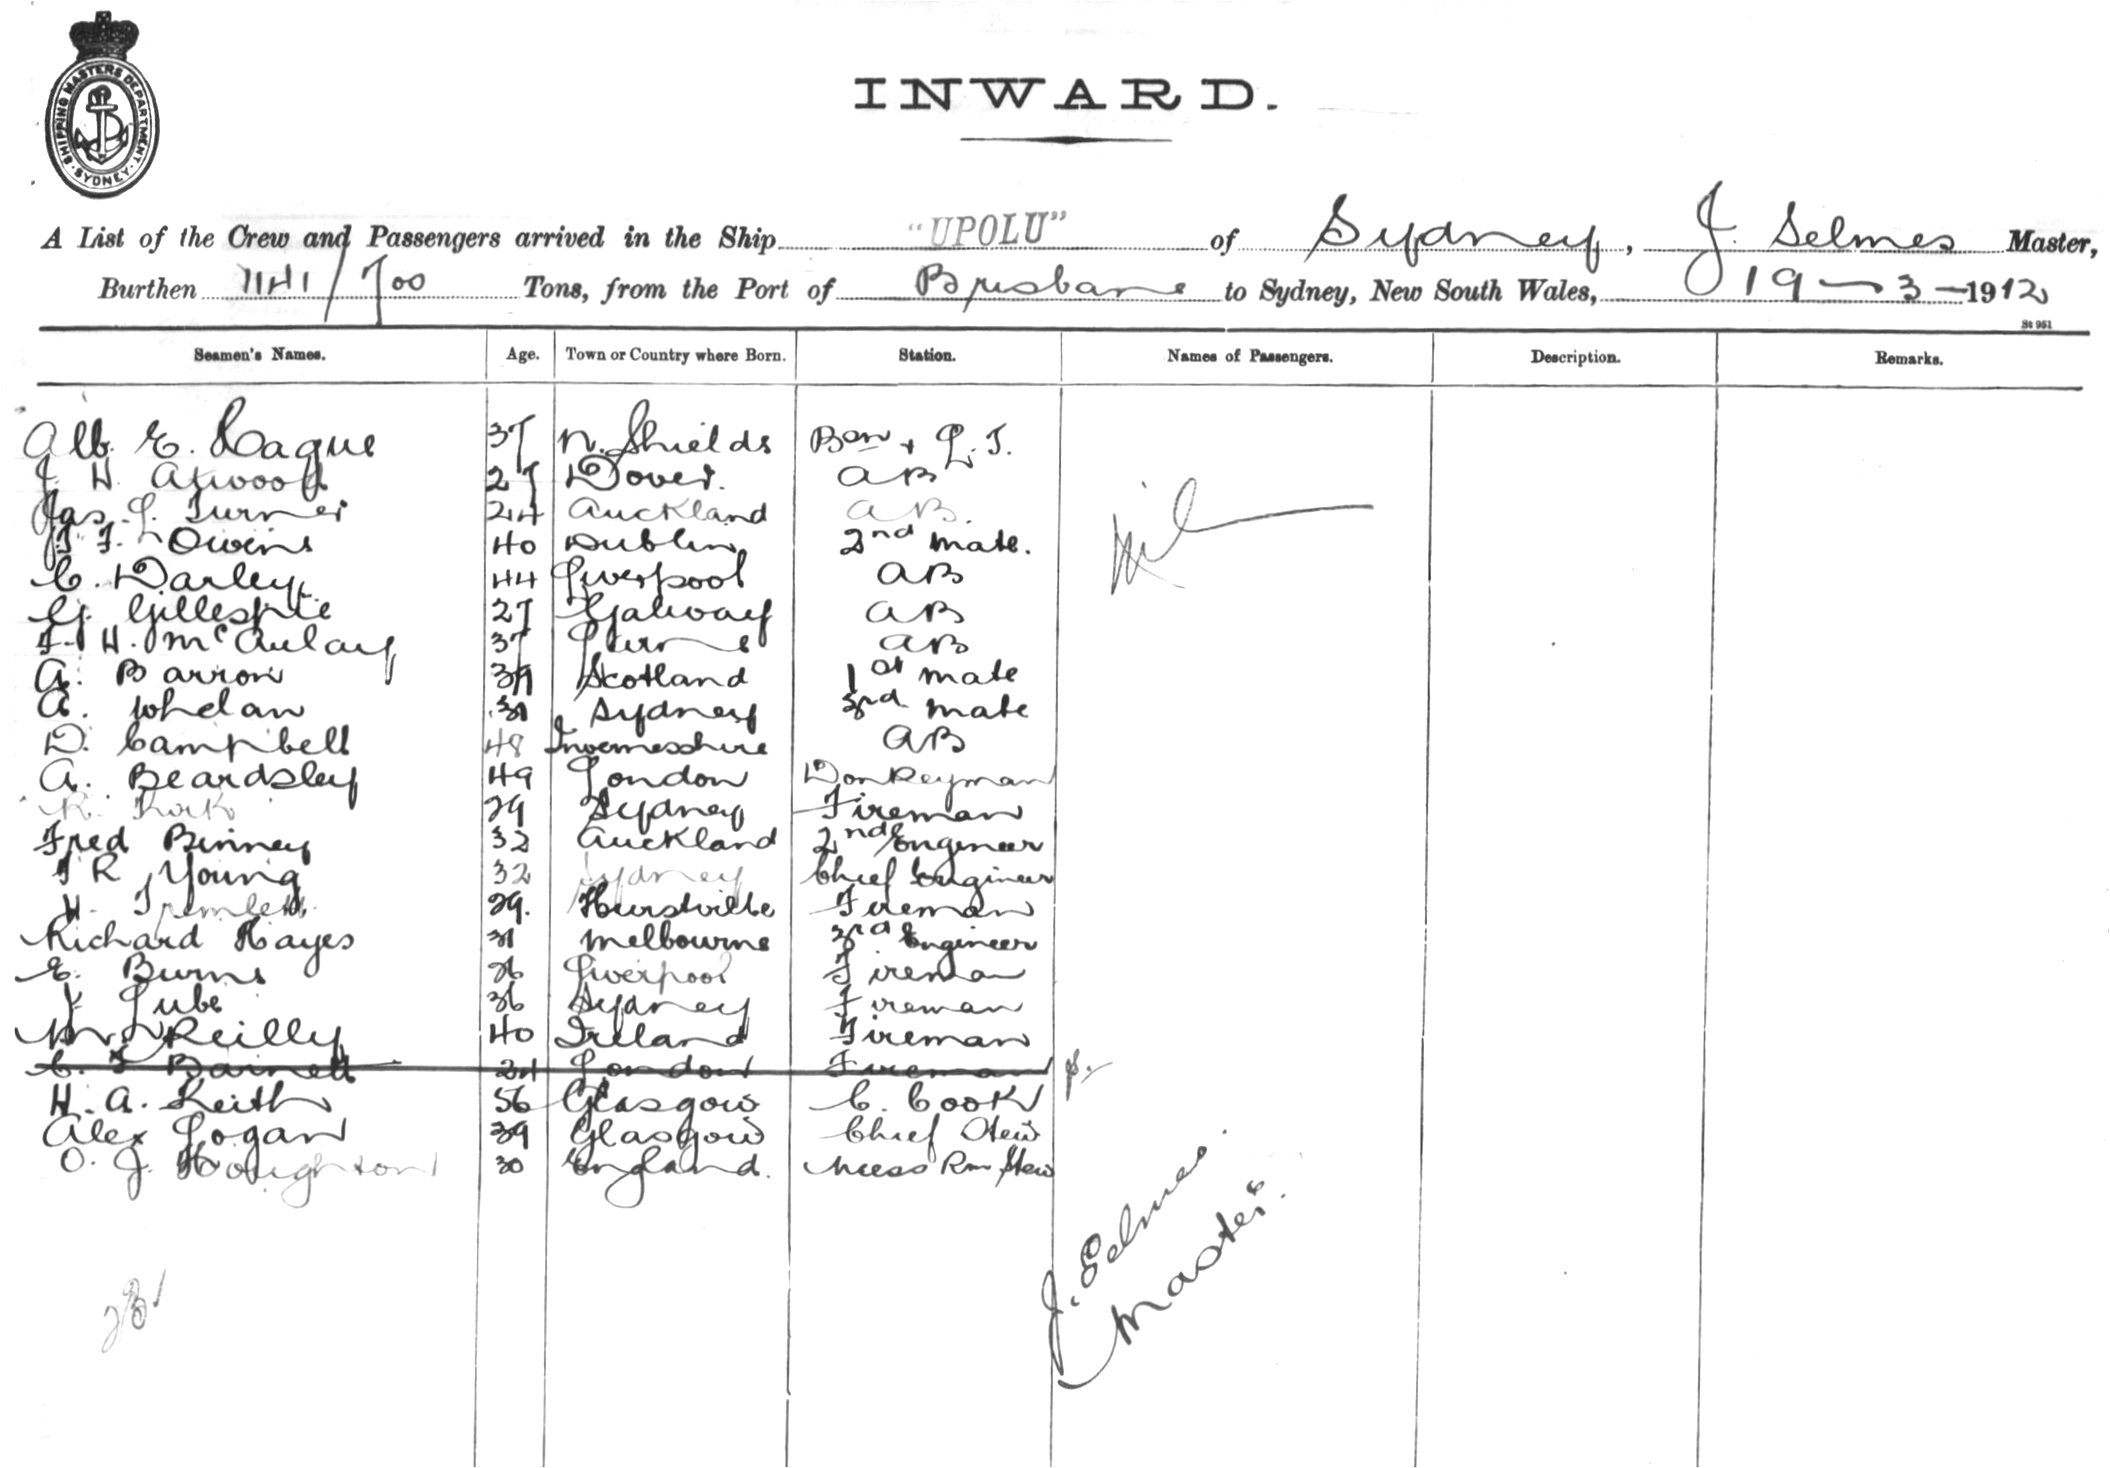 SHIPPING MASTERS DEPARTMENT · SYDNEY ·
INWARD.
A List of the Crew and Passengers arrived in the Ship "UPOLU" of Sydney, J. Selmes Master,
Burthen 1141/700 Tons, from the Port of Brisbane to Sydney, New South Wales, 19-3-1912
St 951
Seamen's Names. Age. Town or Country where Born. Station. Names of Passengers. Description. Remarks.
Alb. E. Hague 37 N. Shields Bsn + L.T.
J. H. Atwood 27 Dover. AB
Jas. L. Turner 24 Auckland AB. Nil
J. F. Owens 40 Dublin 2nd Mate.
C. Darley 44 Liverpool AB
G. Gillespie 27 Galway AB
F. H. McAulay 37 Larne AB
A. Barron 39 Scotland 1st Mate
A. Whelan 31 Sydney 3rd Mate
D. Campbell 48 Invernesshire AB
A. Beardsley 49 London Donkeyman
R. 29 Sydney Fireman
Fred Binney 32 Auckland 2nd Engineer
J R Young 32 Sydney Chief Engineer
H. Tremlett 29. Hurstville Fireman
Richard Hayes 31 Melbourne 3rd Engineer
E. Burns 26 Liverpool Fireman
J. Jube 36 Sydney Fireman
M. Reilly 40 Ireland Fireman
C. F Barnett 24 London Fireman
H. A. Keith 56 Glasgow C. Cook
Alex Logan 39 Glasgow Chief Stew
O. J. Houghton 30 England. Mess Rm Stew
J. Selmes.
Master.